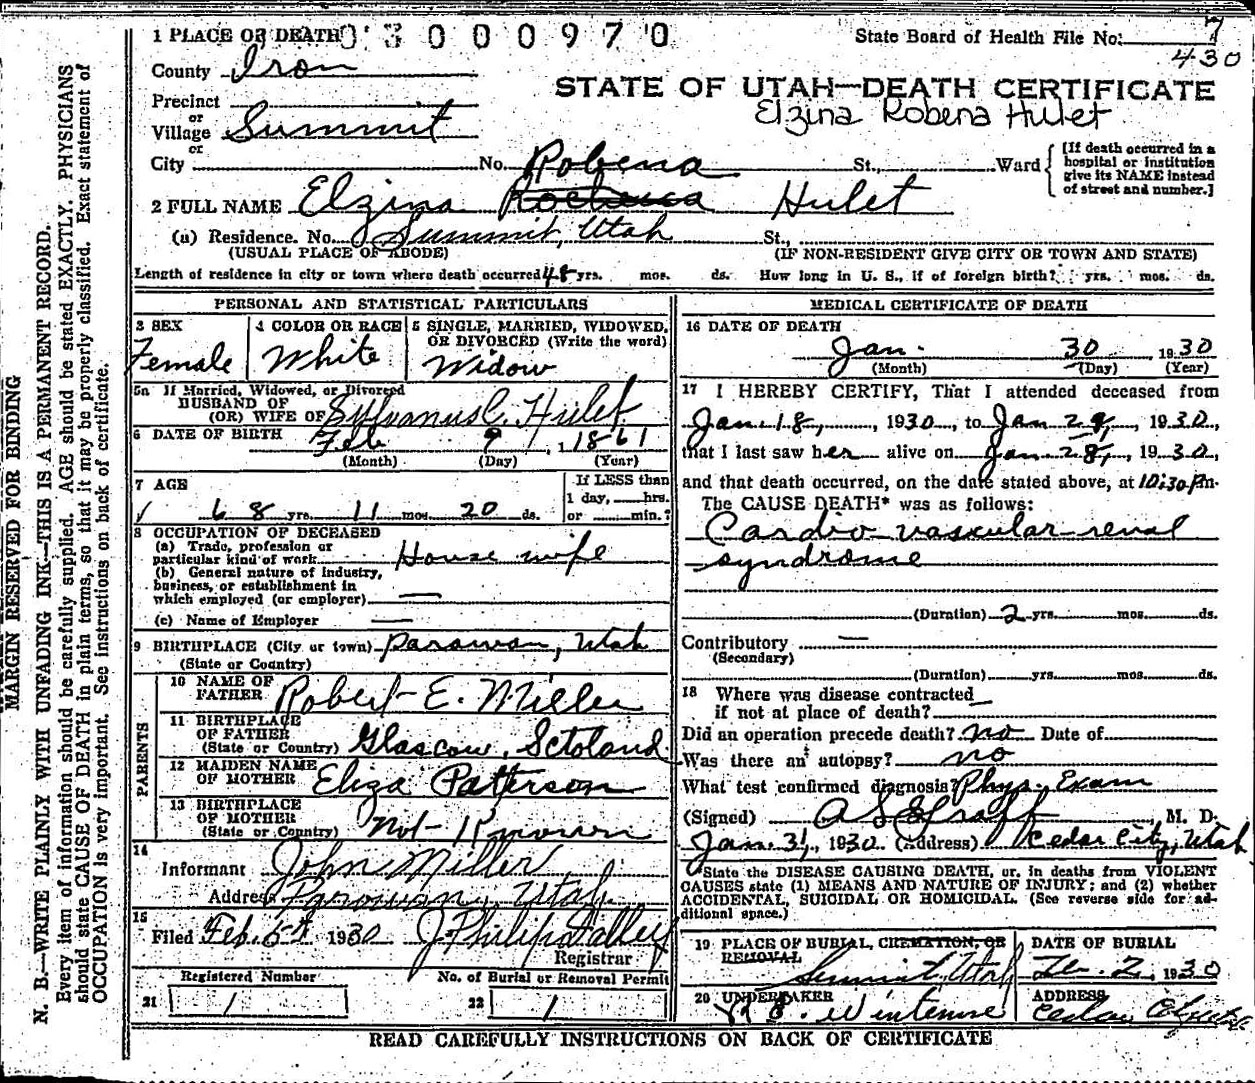 1 PLACE OF DEATH 03000970 State Board of Health File No. 7
430
County Iron
STATE OF UTAH—DEATH CERTIFICATE
Elzina Robena Hulet
Precinct
or
Village Summit
or
City No. Robena St., Ward
[If death occurred in a hospital or institution give its NAME instead of street and number.]
2 FULL NAME Elzina Hulet
(a) Residence. No. Summit, Utah St.,
(USUAL PLACE OF ABODE) (IF NON-RESIDENT GIVE CITY OR TOWN AND STATE)
Length of residence in city or town where death occurred 48 yrs. mos. ds. How long in U. S., if of foreign birth? yrs. mos. ds.
PERSONAL AND STATISTICAL PARTICULARS
3 SEX Female
4 COLOR OR RACE White
5 SINGLE, MARRIED, WIDOWED, OR DIVORCED (Write the word) Widow
5a If Married, Widowed, or Divorced
HUSBAND OF
(OR) WIFE OF Sylvanus C. Hulet
6 DATE OF BIRTH Feb 9, 1861
(Month) (Day) (Year)
7 AGE
68 yrs. 11 mos. 20 ds.
If LESS than
1 day, hrs.
or min.?
8 OCCUPATION OF DECEASED
(a) Trade, profession or
particular kind of work House wife
(b) General nature of industry,
business, or establishment in
which employed (or employer) —
(c) Name of Employer —
9 BIRTHPLACE (City or town) Parowan, Utah
(State or Country)
PARENTS
10 NAME OF
FATHER Robert E. Miller
11 BIRTHPLACE
OF FATHER
(State or Country) Glascow, Sctoland
12 MAIDEN NAME
OF MOTHER Eliza Patterson
13 BIRTHPLACE
OF MOTHER
(State or Country) Not Known
14
Informant John Miller
Address Parowan, Utah
15
Filed Feb. 5th 1930 J Philip Dalley
Registrar
Registered Number No. of Burial or Removal Permit
21 1 22 1
MEDICAL CERTIFICATE OF DEATH
16 DATE OF DEATH
Jan. 30, 1930
(Month) (Day) (Year)
17 I HEREBY CERTIFY, That I attended deceased from
Jan. 18, 1930, to Jan 29, 1930,
that I last saw her alive on Jan. 28, 1930,
and that death occurred, on the date stated above, at 10:30 Pm.
The CAUSE DEATH* was as follows:
Cardio-vascular-renal
syndrome
(Duration) 2 yrs. mos. ds.
Contributory —
(Secondary)
(Duration) yrs. mos. ds.
18 Where was disease contracted
if not at place of death? —
Did an operation precede death? no Date of
Was there an autopsy? no
What test confirmed diagnosis? Phys. Exam
(Signed) A S Graff M. D.
Jan. 31, 1930 (Address) Cedar City, Utah
*State the DISEASE CAUSING DEATH, or, in deaths from VIOLENT
CAUSES state (1) MEANS AND NATURE OF INJURY; and (2) whether
ACCIDENTAL, SUICIDAL OR HOMICIDAL. (See reverse side for ad-
ditional space.)
19 PLACE OF BURIAL, CREMATION, OR REMOVAL
Summit, Utah
DATE OF BURIAL
2, 1930
20 UNDERTAKER
ADDRESS
Cedar
READ CAREFULLY INSTRUCTIONS ON BACK OF CERTIFICATE
MARGIN RESERVED FOR BINDING
N. B.—WRITE PLAINLY WITH UNFADING INK—THIS IS A PERMANENT RECORD.
Every item of information should be carefully supplied. AGE should be stated EXACTLY. PHYSICIANS
should state CAUSE OF DEATH in plain terms, so that it may be properly classified. Exact statement of
OCCUPATION is very important. See instructions on back of certificate.